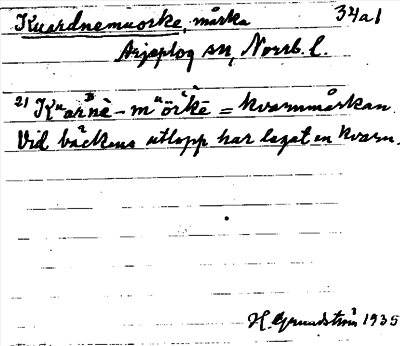 Kuardnemuorke, mårka 34a1
Arjeplog sn, Norrb. l.
21 Kuarnē - muörkē = kvarnmårkan
Vid bäckens utlopp har legat en kvarn.
H. Grundström 1935